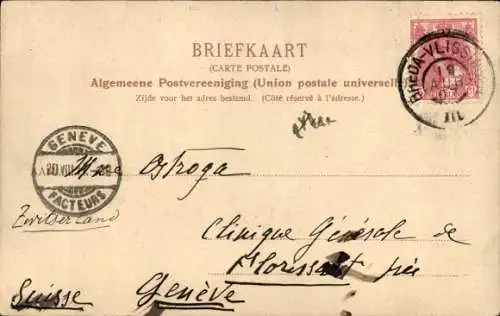 BRIEFKAART
(CARTE POSTALE)
Algemeene Postvereeniging (Union postale universelle)
Zijde voor het adres bestemd. (Côté réservé à l'adresse.)
BREDA-VLISS
GENÈVE
20 VIII
FACTEURS
Ostroga
Zwitserland
Clinique Générale de
Florissant près
Suisse Genève